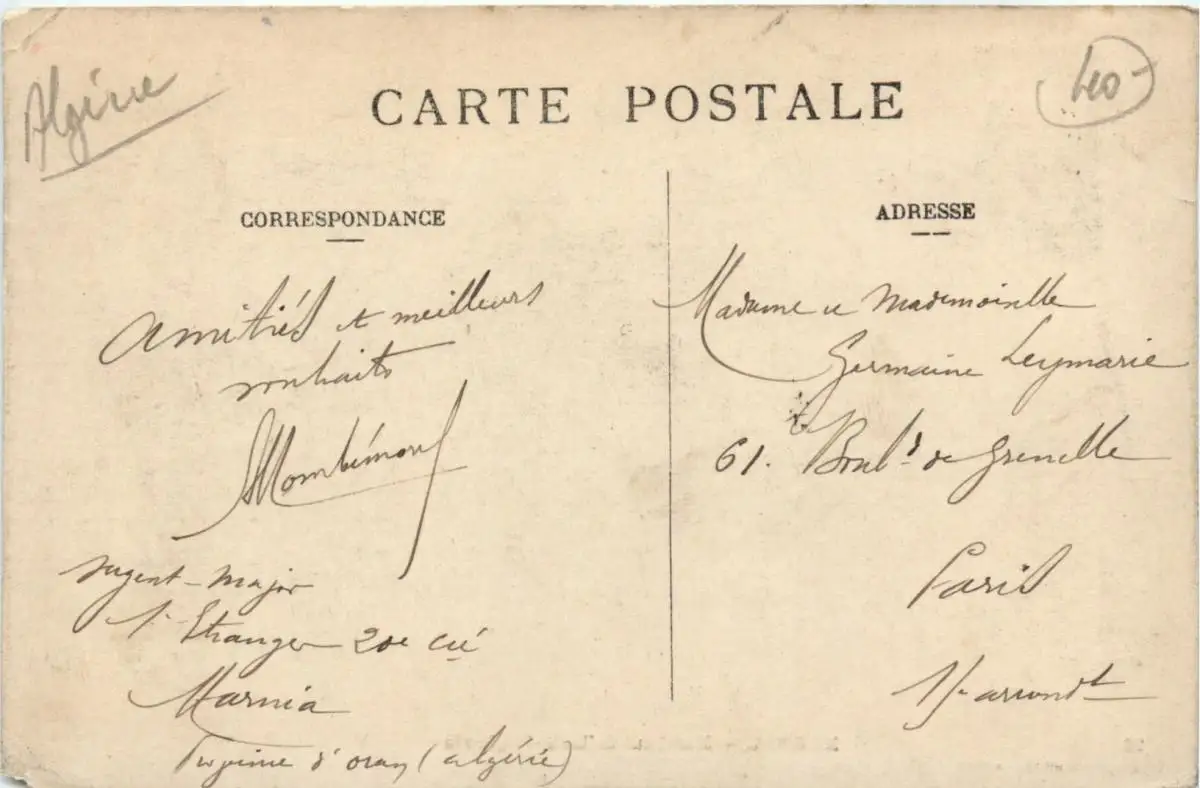 Algérie
CARTE POSTALE
40-
CORRESPONDANCE
Amitiés et meilleurs
souhaits
sergent-major
1er Etranger 20e Cie
Marnia
Province d'Oran (Algérie)
ADRESSE
Madame et Mademoiselle
Germaine Leymarie
61. Bould de Grenelle
Paris
15e arrondt